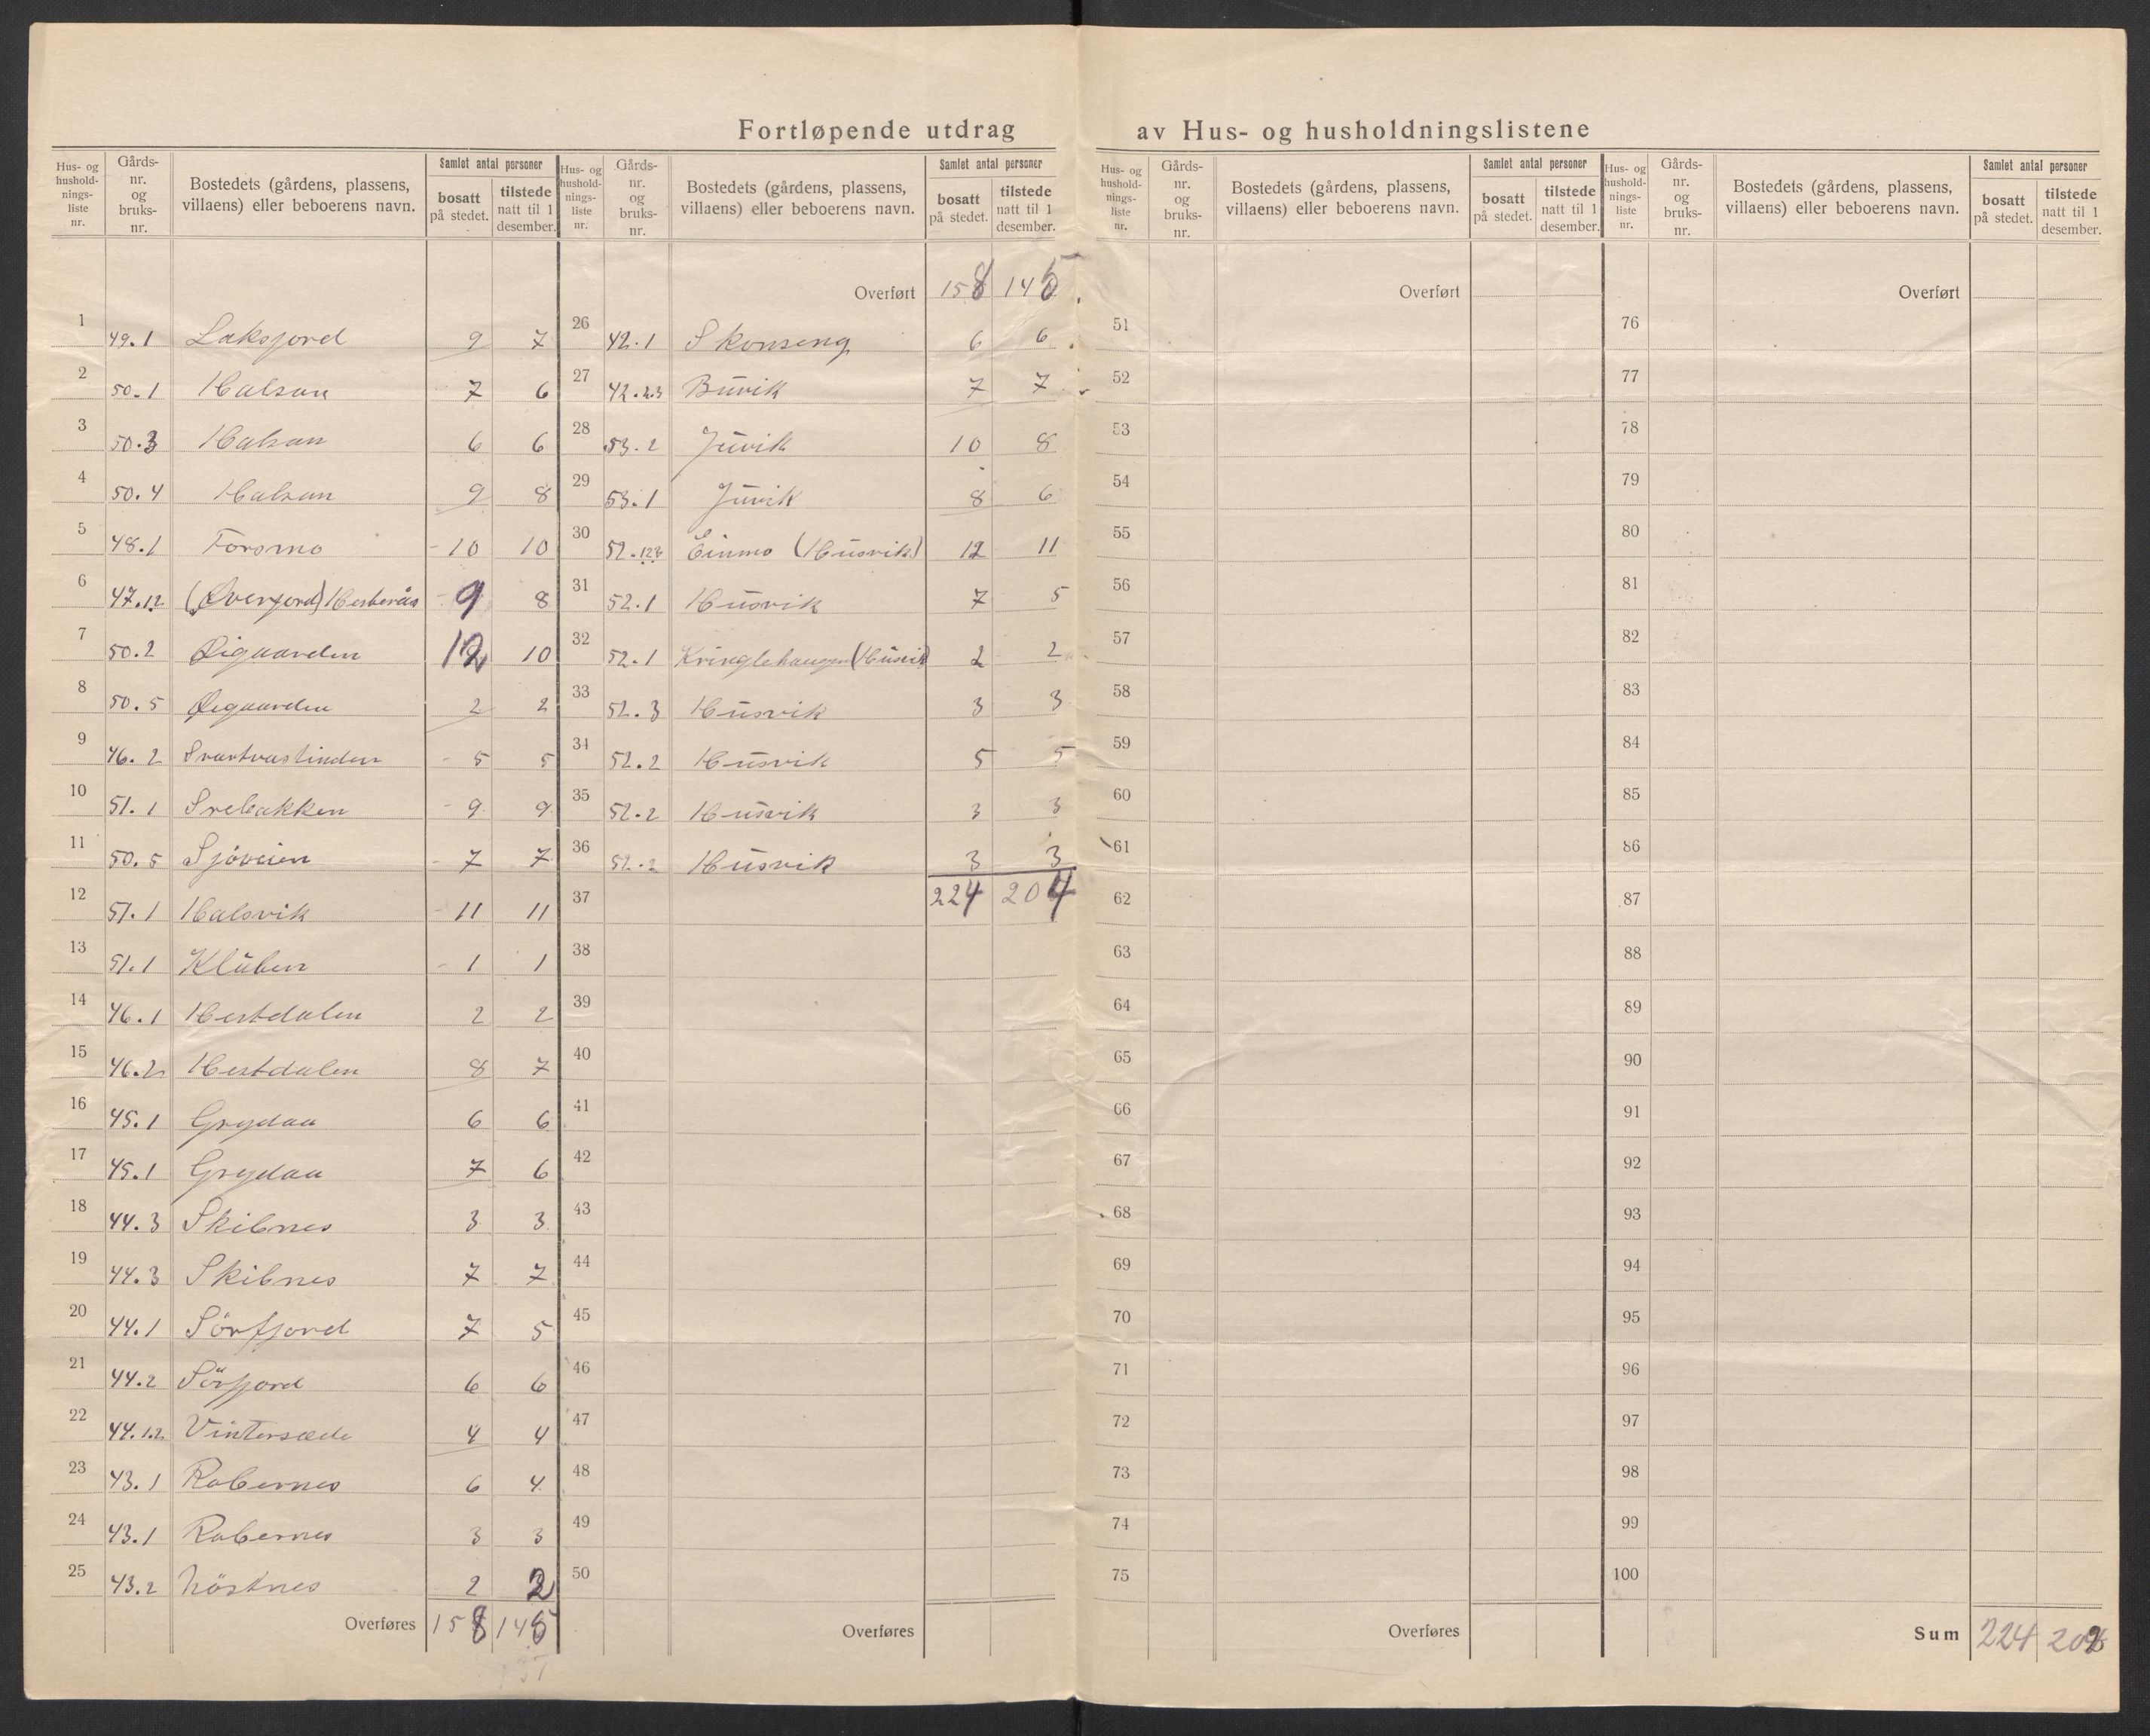 Fortløpende utdrag av Hus- og husholdningslistene
Hus- og hushold-nings-liste nr. | Gårds-nr. og bruks-nr. | Bostedets (gårdens, plassens, villaens) eller beboerens navn. | Samlet antal personer | bosatt på stedet. | tilstede natt til 1 desember.
1 49.1 Laksfjord 9 7
2 50.1 Halsan 7 6
3 50.3 Halsan 6 6
4 50.4 Halsan 9 8
5 48.1 Forsmo 10 10
6 47.12 (Øverfjord) 9 8
7 50.2 Øigaarden 12 10
8 50.5 Øigaarden 2 2
9 46.2 Svartvastinden 5 5
10 51.1 Srebakken 9 9
11 50.5 Sjöveien 7 7
12 51.1 Halsvik 11 11
13 51.1 Klüben 1 1
14 46.1 Hestdalen 2 2
15 46.2 Hestdalen 8 7
16 45.1 Grydaa 6 6
17 45.1 Grydaa 7 6
18 44.3 Skibnes 3 3
19 44.3 Skibnes 7 7
20 44.1 Sörfjord 7 5
21 44.2 Sörfjord 6 6
22 44.1.2 Vintersæde 4 4
23 43.1 Rabernes 6 4
24 43.1 Rabernes 3 3
25 43.2 Nöstnes 2 2
Overføres 158 145
137
Hus- og hushold-nings-liste nr. | Gårds-nr. og bruks-nr. | Bostedets (gårdens, plassens, villaens) eller beboerens navn. | Samlet antal personer | bosatt på stedet. | tilstede natt til 1 desember.
Overført 158 145
26 42.1 Skonseng 6 6
27 42.2.3 Büvik 7 7
28 53.2 Jüvik 10 8
29 53.1 Jüvik 8 6
30 52.128 Einmo (Hüsvik) 12 11
31 52.1 Hüsvik 7 5
32 52.1 Kringlehaugen (Hüsvik) 2 2
33 52.3 Hüsvik 3 3
34 52.2 Hüsvik 5 5
35 52.2 Hüsvik 3 3
36 52.2 Hüsvik 3 3
37 224 204
38
39
40
41
42
43
44
45
46
47
48
49
50
Overføres
Hus- og hushold-nings-liste nr. | Gårds-nr. og bruks-nr. | Bostedets (gårdens, plassens, villaens) eller beboerens navn. | Samlet antal personer | bosatt på stedet. | tilstede natt til 1 desember.
Overført
51
52
53
54
55
56
57
58
59
60
61
62
63
64
65
66
67
68
69
70
71
72
73
74
75
Overføres
Hus- og hushold-nings-liste nr. | Gårds-nr. og bruks-nr. | Bostedets (gårdens, plassens, villaens) eller beboerens navn. | Samlet antal personer | bosatt på stedet. | tilstede natt til 1 desember.
Overført
76
77
78
79
80
81
82
83
84
85
86
87
88
89
90
91
92
93
94
95
96
97
98
99
100
Sum 224